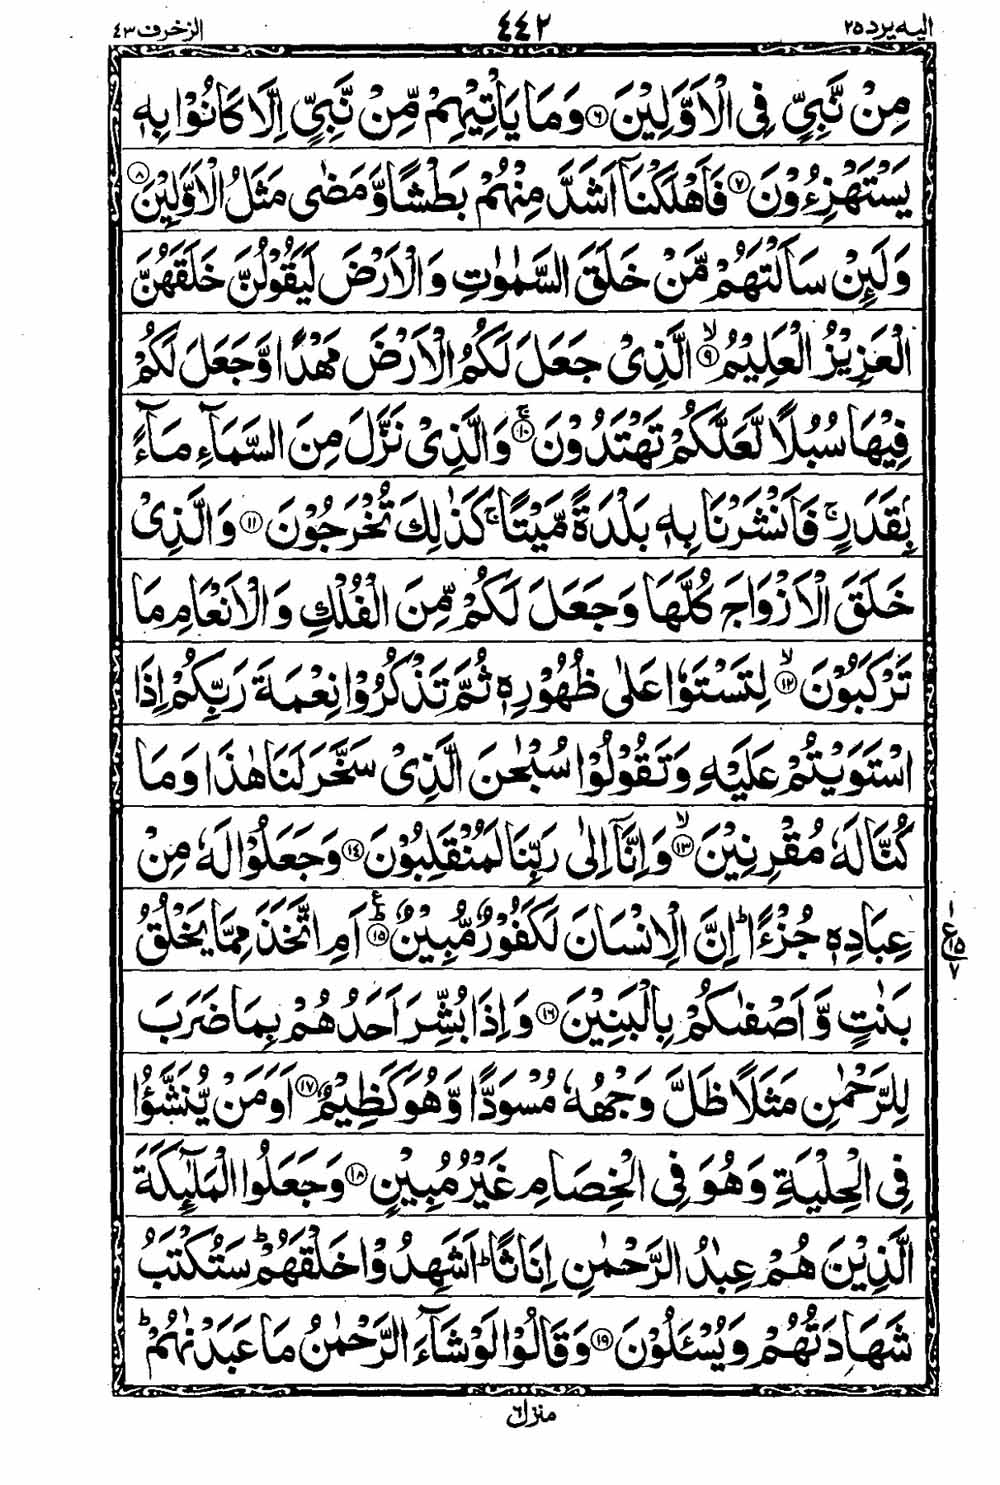 اليه يرد ٢٥ ٤٤٢ الزخرف ٤٣
مِنْ نَّبِيٍّ فِى الْاَوَّلِيْنَ ۝٦ وَمَا يَاْتِيْهِمْ مِّنْ نَّبِيٍّ اِلَّا كَانُوْا بِهٖ
يَسْتَهْزِءُوْنَ ۝٧ فَاَهْلَكْنَاۤ اَشَدَّ مِنْهُمْ بَطْشًا وَّ مَضٰى مَثَلُ الْاَوَّلِيْنَ ۝٨
وَلَئِنْ سَاَلْتَهُمْ مَّنْ خَلَقَ السَّمٰوٰتِ وَالْاَرْضَ لَيَقُوْلُنَّ خَلَقَهُنَّ
الْعَزِيْزُ الْعَلِيْمُ ۙ۝٩ الَّذِىْ جَعَلَ لَكُمُ الْاَرْضَ مَهْدًا وَّجَعَلَ لَكُمْ
فِيْهَا سُبُلًا لَّعَلَّكُمْ تَهْتَدُوْنَ ۚ۝١٠ وَالَّذِىْ نَزَّلَ مِنَ السَّمَآءِ مَآءًۢ
بِقَدَرٍ ۚ فَاَنْشَرْنَا بِهٖ بَلْدَةً مَّيْتًا ۚ كَذٰلِكَ تُخْرَجُوْنَ ۝١١ وَالَّذِىْ
خَلَقَ الْاَزْوَاجَ كُلَّهَا وَجَعَلَ لَكُمْ مِّنَ الْفُلْكِ وَالْاَنْعَامِ مَا
تَرْكَبُوْنَ ۙ۝١٢ لِتَسْتَوٗا عَلٰى ظُهُوْرِهٖ ثُمَّ تَذْكُرُوْا نِعْمَةَ رَبِّكُمْ اِذَا
اسْتَوَيْتُمْ عَلَيْهِ وَتَقُوْلُوْا سُبْحٰنَ الَّذِىْ سَخَّرَ لَنَا هٰذَا وَمَا
كُنَّا لَهٗ مُقْرِنِيْنَ ۙ۝١٣ وَاِنَّاۤ اِلٰى رَبِّنَا لَمُنْقَلِبُوْنَ ۝١٤ وَجَعَلُوْا لَهٗ مِنْ
عِبَادِهٖ جُزْءًا ؕ اِنَّ الْاِنْسَانَ لَكَفُوْرٌ مُّبِيْنٌ ؕ۝١٥ اَمِ اتَّخَذَ مِمَّا يَخْلُقُ
١ ع ١٥ ٧
بَنٰتٍ وَّاَصْفٰىكُمْ بِالْبَنِيْنَ ۝١٦ وَاِذَا بُشِّرَ اَحَدُهُمْ بِمَا ضَرَبَ
لِلرَّحْمٰنِ مَثَلًا ظَلَّ وَجْهُهٗ مُسْوَدًّا وَّهُوَ كَظِيْمٌ ۝١٧ اَوَمَنْ يُّنَشَّؤُا
فِى الْحِلْيَةِ وَهُوَ فِى الْخِصَامِ غَيْرُ مُبِيْنٍ ۝١٨ وَجَعَلُوا الْمَلٰٓئِكَةَ
الَّذِيْنَ هُمْ عِبٰدُ الرَّحْمٰنِ اِنَاثًا ؕ اَشَهِدُوْا خَلْقَهُمْ ؕ سَتُكْتَبُ
شَهَادَتُهُمْ وَيُسْـَٔلُوْنَ ۝١٩ وَقَالُوْا لَوْ شَآءَ الرَّحْمٰنُ مَا عَبَدْنٰهُمْ ؕ
منزل ٦